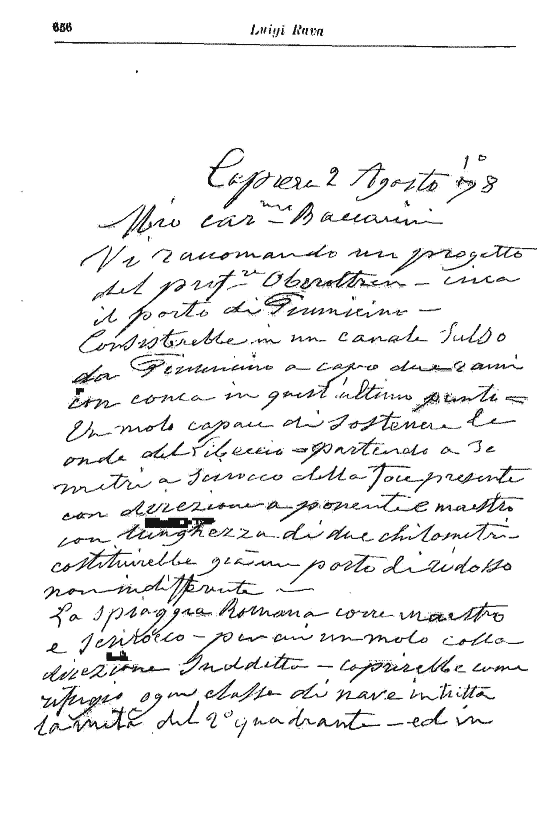 656
Luigi Rava
Caprera 2 Agosto 78
Mio car.mo Baccarini
Vi raccomando un progetto
del prof.re circa
il porto di Fiumicino -
Consisterebbe in un canale
da Fiumicino a capo due rami
con conca in quest'ultimo punto =
Un molo capace di sostenere le
onde del Libeccio = partendo a 30
metri a Scirocco della foce presente
con direzione a ponente e maestro
con lunghezza di due chilometri -
costituirebbe già un porto di ridosso
non indifferente -
La spiaggia Romana corre maestro
e Scirocco - per cui un molo colla
direzione Suddetta - coprirebbe come
rifugio ogni classe di nave in tutta
la metà del 2º quadrante - ed in